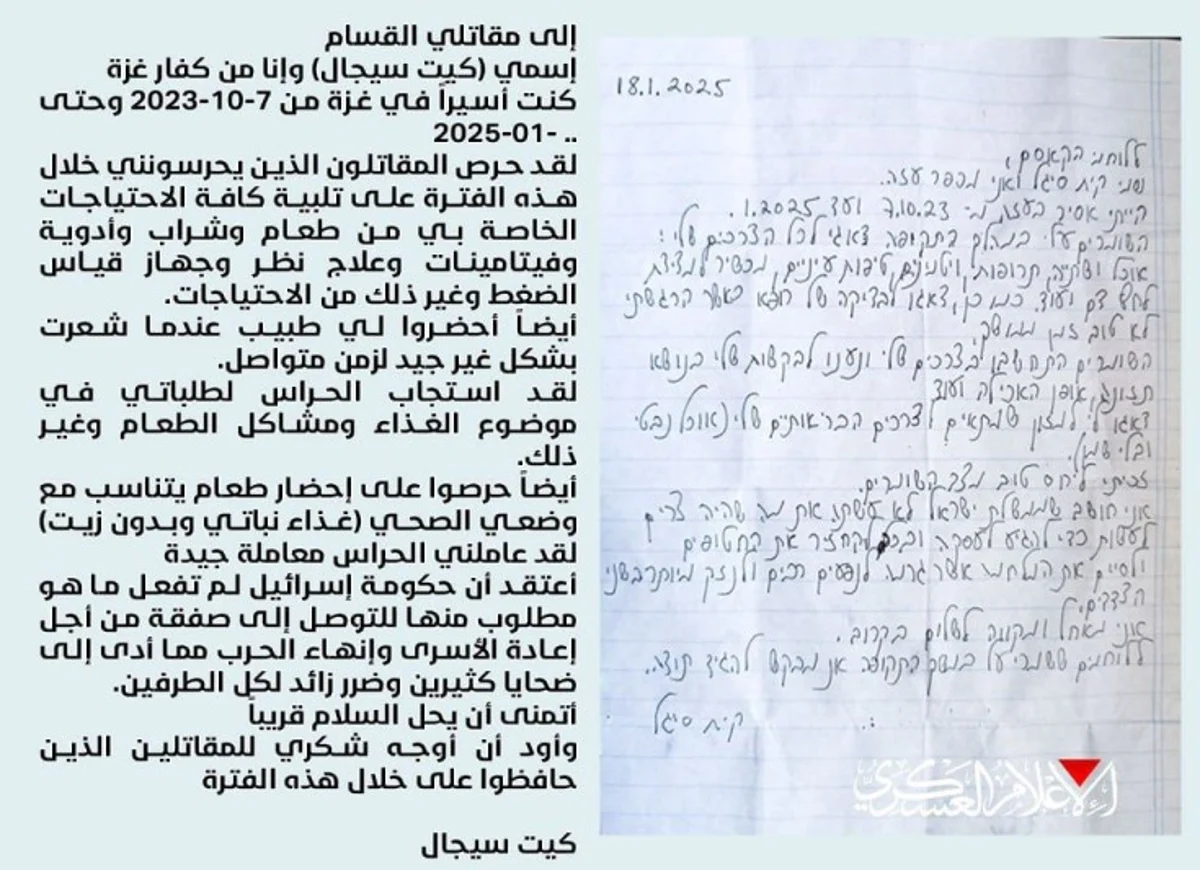 إلى مقاتلي القسام
إسمي (كيت سيجال) وإنا من كفار غزة
كنت أسيراً في غزة من 7-10-2023 وحتى
.. -01-2025
لقد حرص المقاتلون الذين يحرسونني خلال
هذه الفترة على تلبية كافة الاحتياجات
الخاصة بي من طعام وشراب وأدوية
وفيتامينات وعلاج نظر وجهاز قياس
الضغط وغير ذلك من الاحتياجات.
أيضاً أحضروا لي طبيب عندما شعرت
بشكل غير جيد لزمن متواصل.
لقد استجاب الحراس لطلباتي في
موضوع الغذاء ومشاكل الطعام وغير
ذلك.
أيضاً حرصوا على إحضار طعام يتناسب مع
وضعي الصحي (غذاء نباتي وبدون زيت)
لقد عاملني الحراس معاملة جيدة
أعتقد أن حكومة إسرائيل لم تفعل ما هو
مطلوب منها للتوصل إلى صفقة من أجل
إعادة الأسرى وإنهاء الحرب مما أدى إلى
ضحايا كثيرين وضرر زائد لكل الطرفين.
أتمنى أن يحل السلام قريباً
وأود أن أوجه شكري للمقاتلين الذين
حافظوا على خلال هذه الفترة
كيت سيجال
18.1.2025
ללוחמי הקאסם,
שמי קית סיגל ואני מכפר עזה.
הייתי אסיר בעזה מ- 7.10.23 ועד 1.2025.
השומרים עלי במהלך התקופה דאגו לכל הצרכים שלי:
אוכל ושתיה, תרופות, ויטמינים, טיפות עיניים, מכשיר למדידת
לחץ דם ועוד. כמו כן, דאגו לבדיקה של רופא כאשר הרגשתי
לא טוב זמן ממושך.
השומרים התחשבו בצרכים שלי ונענו לבקשות שלי בנושא
תזונה, אופן האכילה ועוד
דאגו לי למזון שמתאים לצרכים הבריאותיים שלי (אוכל נבטי
ובלי שמן).
זכיתי ליחס טוב מצד השומרים.
אני חושב שממשלת ישראל לא עשתה את מה שהיה צריך
לעשות כדי להגיע לעסקה ולהחזיר את החטופים
ולסיים את המלחמה אשר גרמה לנפגעים רבים ולנזק מיותר בשני
הצדדים.
אני מאחל ומקווה לשלום בקרוב.
ללוחמים ששמרו עלי במשך התקופה אני מבקש להגיד תודה.
קית סיגל
الإعلام العسكري